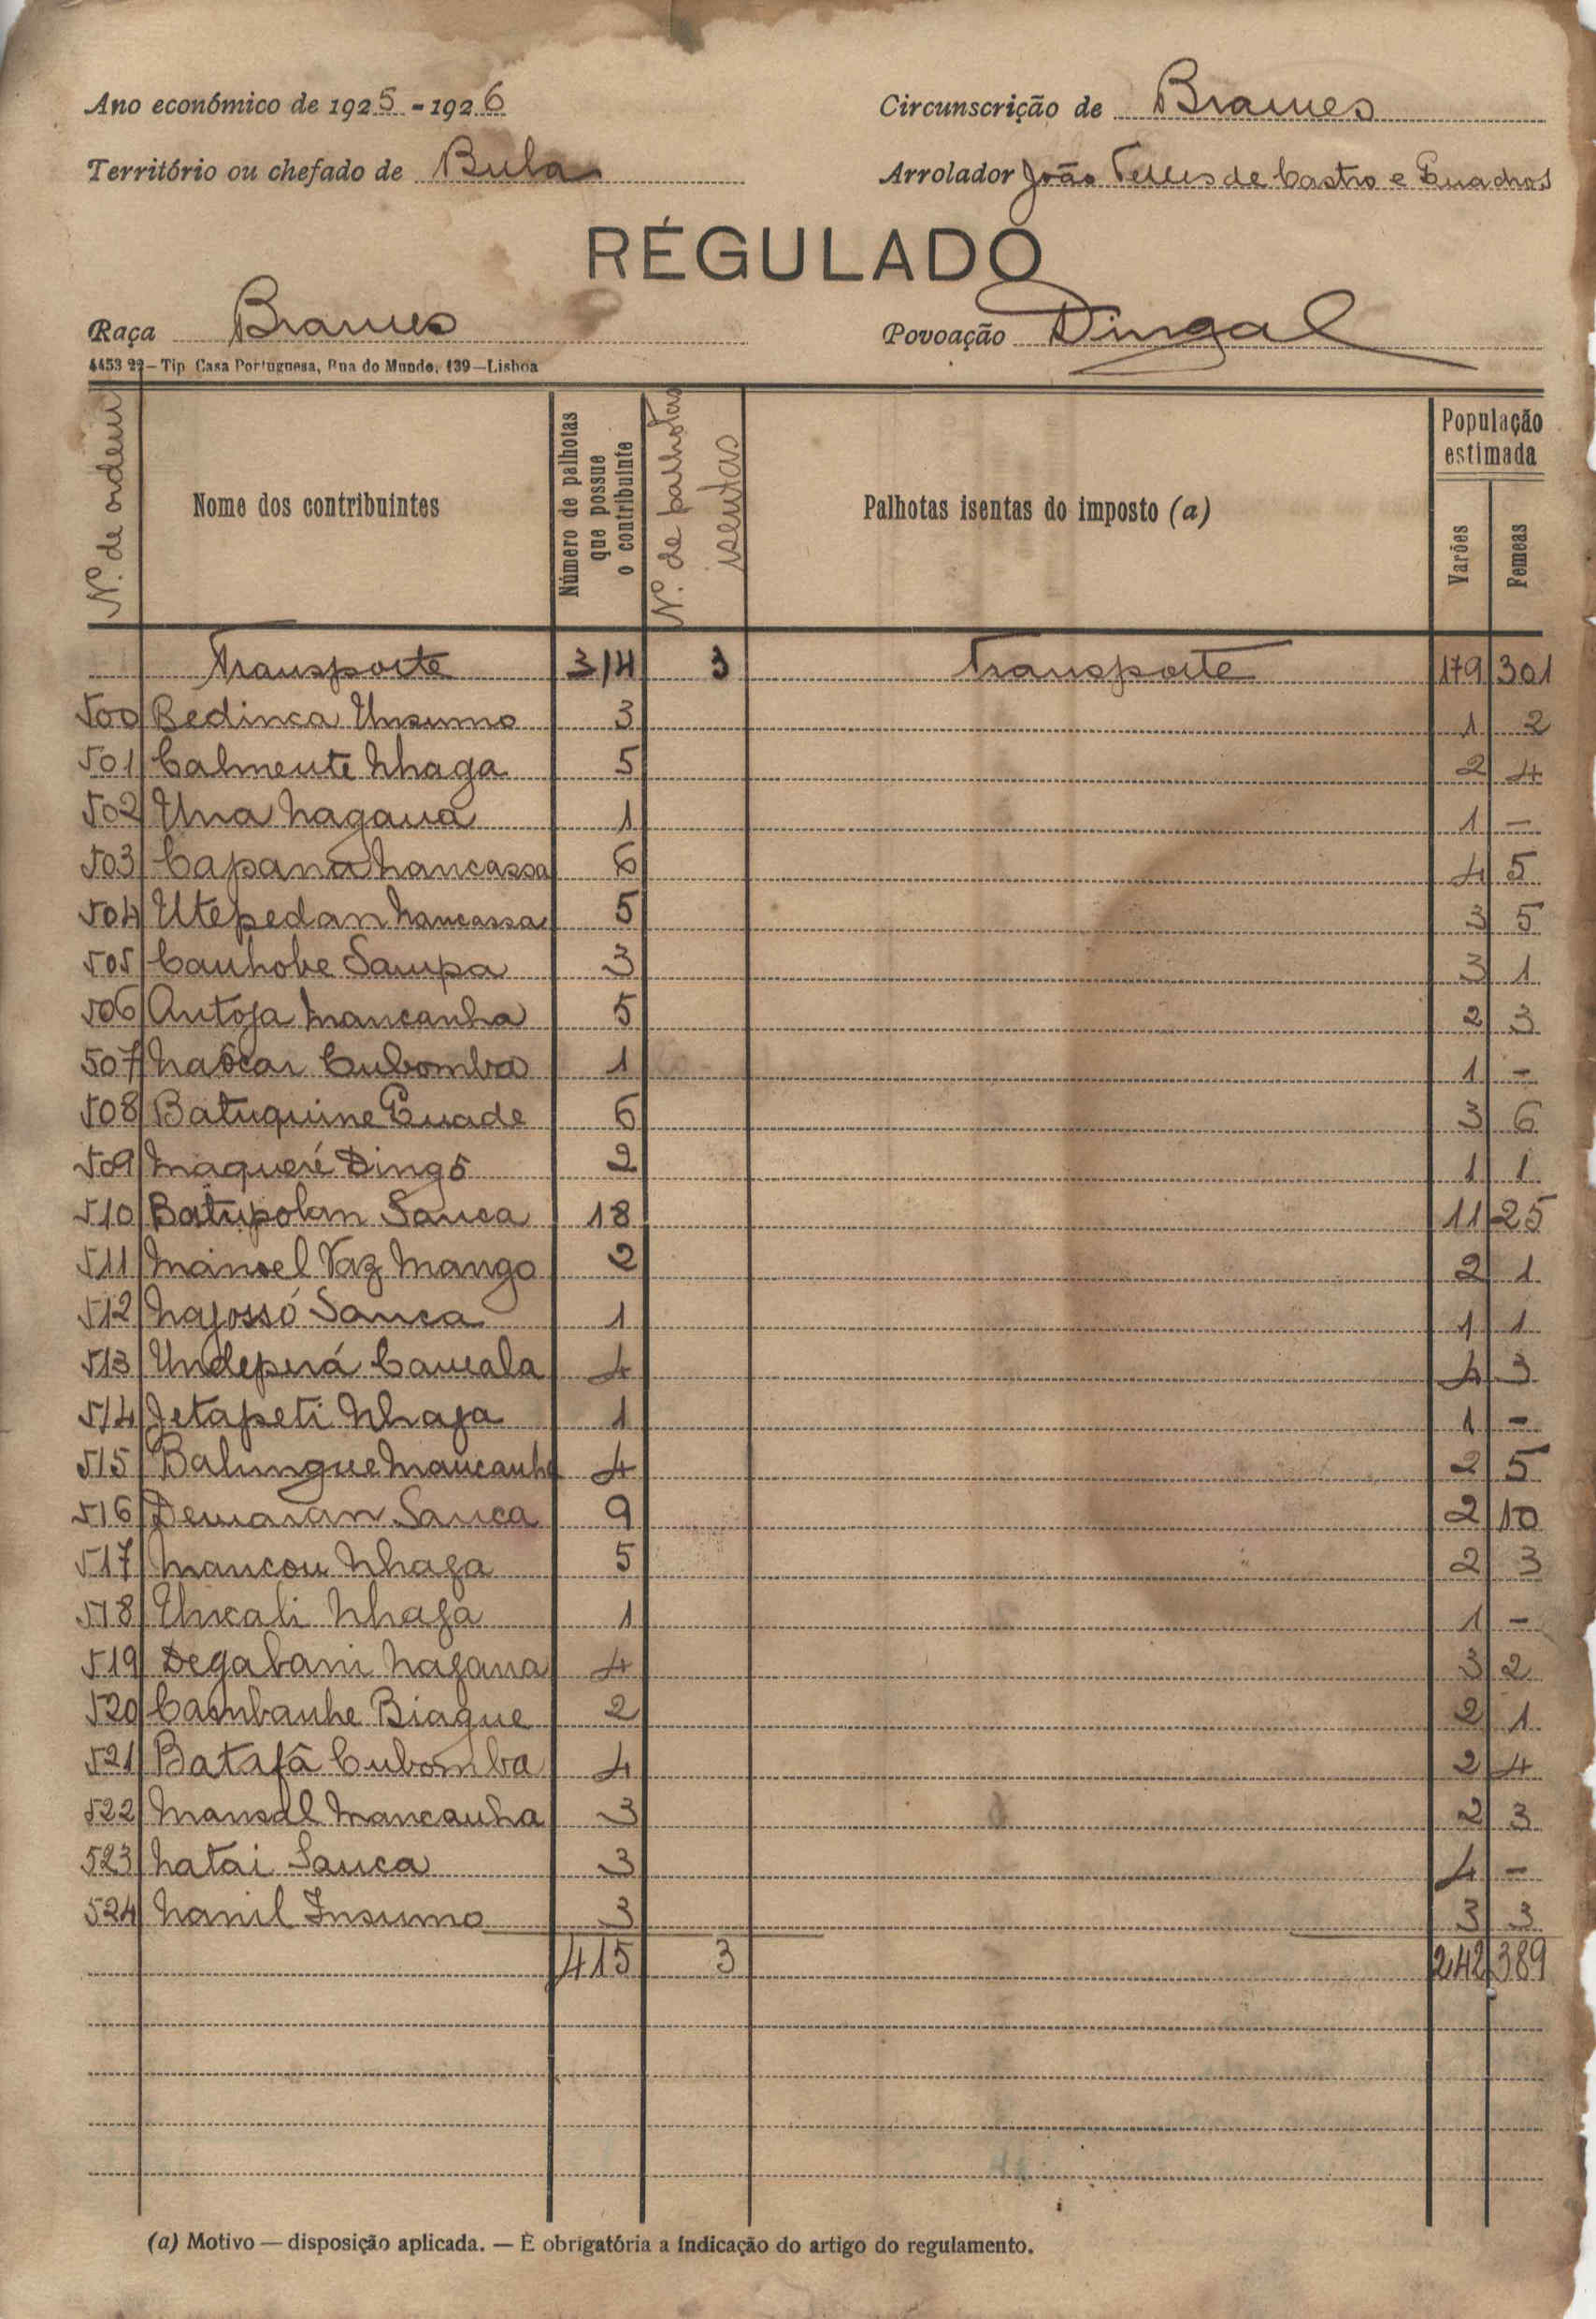 Ano económico de 1925-1926
Circunscrição de Brames
Território ou chefado de Bula
Arrolador João Telles de Castro e Quadros
RÉGULADO
Raça Brames
Povoação Dingal
4453 22 — Tip Casa Portuguesa, Rua do Mundo, 139 — Lisboa
Nº. de ordem
Nome dos contribuintes
Número de palhotas que possue o contribuinte
Nº. de palhotas isentas
Palhotas isentas do imposto (a)
População estimada
Varões
Femeas
Transporte 314 3 Transporte 179 301
500 Bedinca Unsumo 3 1 2
501 Calmente Nhaga 5 2 4
502 Una Nagana 1 1 -
503 Capana Nancassa 6 4 5
504 Utepedan Nancassa 5 3 5
505 Canhobe Sampa 3 3 1
506 Antoja Mancanha 5 2 3
507 Naôcar Cubomba 1 1 -
508 Batuquine Quade 6 3 6
509 Maqueré Dingó 2 1 1
510 Batupolan Sanca 18 11 25
511 Manoel Vaz Mango 2 2 1
512 Najossó Sanca 1 1 1
513 Undeperá Cameala 4 4 3
514 Jetapeti Nhaga 1 1 -
515 Balungue Mancanha 4 2 5
516 Demaran Sanca 9 2 10
517 Mancou Nhaga 5 2 3
518 Uncali Nhaga 1 1 -
519 Degabani Nagana 4 3 2
520 Cambanhe Biague 2 2 1
521 Batafâ Cubomba 4 2 4
522 Mansal Mancanha 3 2 3
523 Natai Sanca 3 4 -
524 Nanil Insumo 3 3 3
415 3 242 389
(a) Motivo — disposição aplicada. — È obrigatória a indicação do artigo do regulamento.